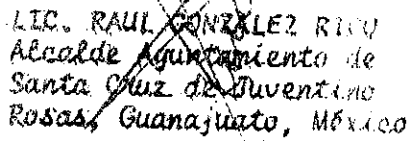 LIC. RAUL GONZALEZ RICO
Alcalde Ayuntamiento de
Santa Cruz de Juventino
Rosas, Guanajuato, México